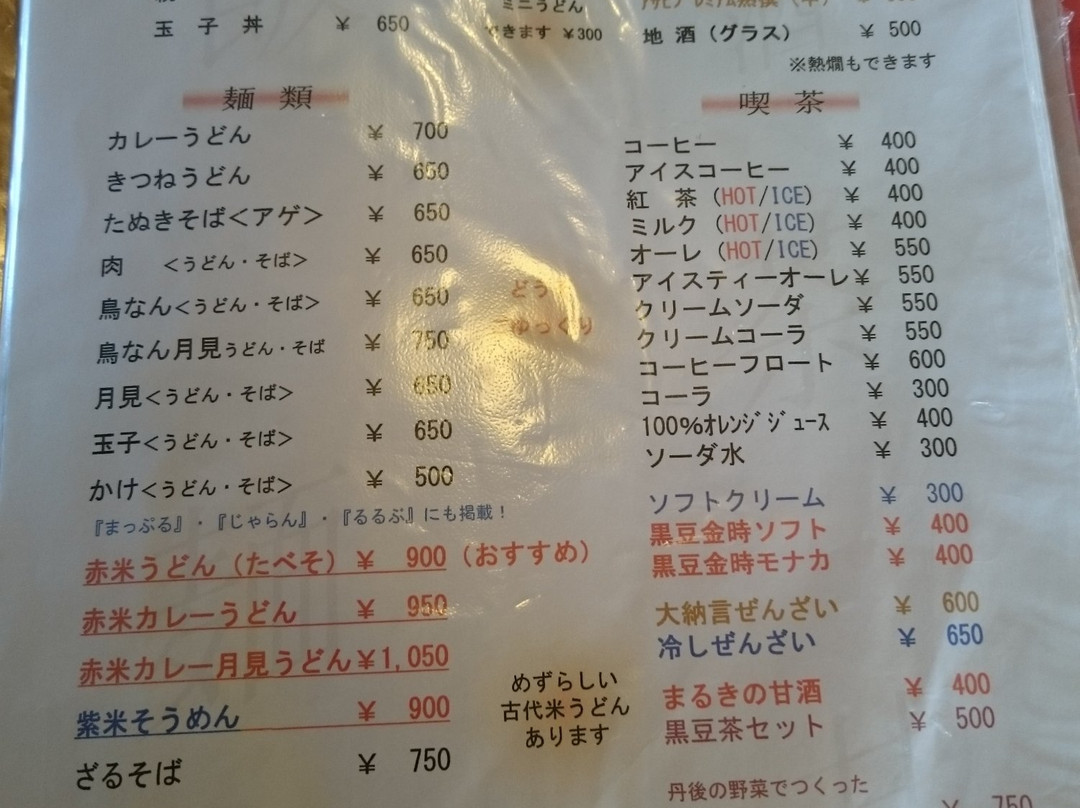 玉子丼 ¥ 650
ミニうどん
できます ¥300
地酒(グラス) ¥ 500
※熱燗もできます
麺類
カレーうどん ¥ 700
きつねうどん ¥ 650
たぬきそば<アゲ> ¥ 650
肉 <うどん・そば> ¥ 650
鳥なん<うどん・そば> ¥ 650
鳥なん月見うどん・そば ¥ 750
月見<うどん・そば> ¥ 650
玉子<うどん・そば> ¥ 650
かけ<うどん・そば> ¥ 500
『まっぷる』・『じゃらん』・『るるぶ』にも掲載!
赤米うどん(たべそ) ¥ 900(おすすめ)
赤米カレーうどん ¥ 950
赤米カレー月見うどん¥1,050
紫米そうめん ¥ 900
ざるそば ¥ 750
どう
ゆっくり
めずらしい
古代米うどん
あります
喫茶
コーヒー ¥ 400
アイスコーヒー ¥ 400
紅茶(HOT/ICE) ¥ 400
ミルク(HOT/ICE) ¥ 400
オーレ(HOT/ICE) ¥ 550
アイスティーオーレ¥ 550
クリームソーダ ¥ 550
クリームコーラ ¥ 550
コーヒーフロート ¥ 600
コーラ ¥ 300
100%オレンジジュース ¥ 400
ソーダ水 ¥ 300
ソフトクリーム ¥ 300
黒豆金時ソフト ¥ 400
黒豆金時モナカ ¥ 400
大納言ぜんざい ¥ 600
冷しぜんざい ¥ 650
まるきの甘酒 ¥ 400
黒豆茶セット ¥ 500
丹後の野菜でつくった
¥ 750